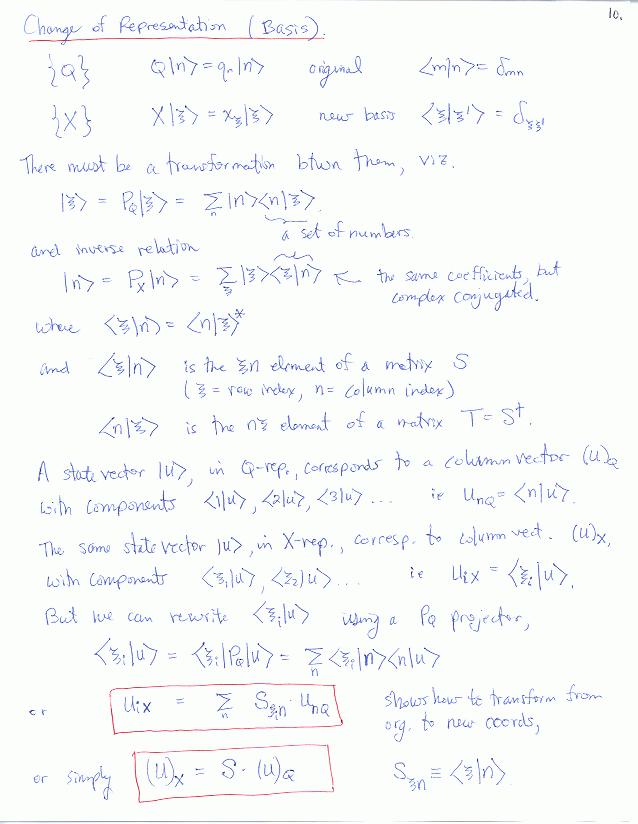 10.
Change of Representation (Basis).
{Q} Q|n> = qₙ|n> original <m|n> = δmn
{X} X|ξ> = x_ξ|ξ> new basis <ξ|ξ'> = δ_ξξ'
There must be a transformation btwn them, viz.
|ξ> = P_Q|ξ> = Σₙ |n><n|ξ>.
a set of numbers.
and inverse relation
|n> = P_X|n> = Σ_ξ |ξ><ξ|n> ← the same coefficients, but
complex conjugated.
where <ξ|n> = <n|ξ>*
and <ξ|n> is the ξn element of a matrix S
(ξ = row index, n = column index)
<n|ξ> is the nξ element of a matrix T = S†.
A state vector |u>, in Q-rep., corresponds to a column vector (u)_Q
with components <1|u>, <2|u>, <3|u> ... ie u_nQ = <n|u>.
The same state vector |u>, in X-rep., corresp. to column vect. (u)_X,
with components <ξ₁|u>, <ξ₂|u> ... ie u_iX = <ξᵢ|u>.
But we can rewrite <ξᵢ|u> using a P_Q projector,
<ξᵢ|u> = <ξᵢ|P_Q|u> = Σₙ <ξᵢ|n><n|u>
or u_iX = Σₙ S_ξᵢn · u_nQ shows how to transform from
org. to new coords,
or simply (u)_X = S · (u)_Q S_ξn ≡ <ξ|n>